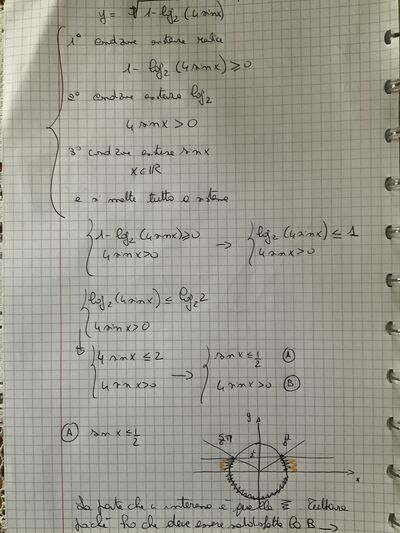 y = √1-log₂(4sinx)
1° condzione esistere radice
1 - log₂(4sinx) ≥ 0
2° condzione esistere log₂
4 sinx > 0
3° condzione esistere sinx
x∈ℝ
e si mette tutto a sistema
{1-log₂(4sinx)≥0 → {log₂(4sinx) ≤ 1
4sinx>0 4sinx>0
{log₂(4sinx) ≤ log₂2
4sinx>0
↓ {4 sinx ≤ 2 → {sinx ≤ 1/2 (A)
4sinx>0 4sinx>0 (B)
(A) sinx ≤ 1/2
y
x
La parte che a interessa è quella Tuttavia
poiché ho che deve essere soddisfatta la B →